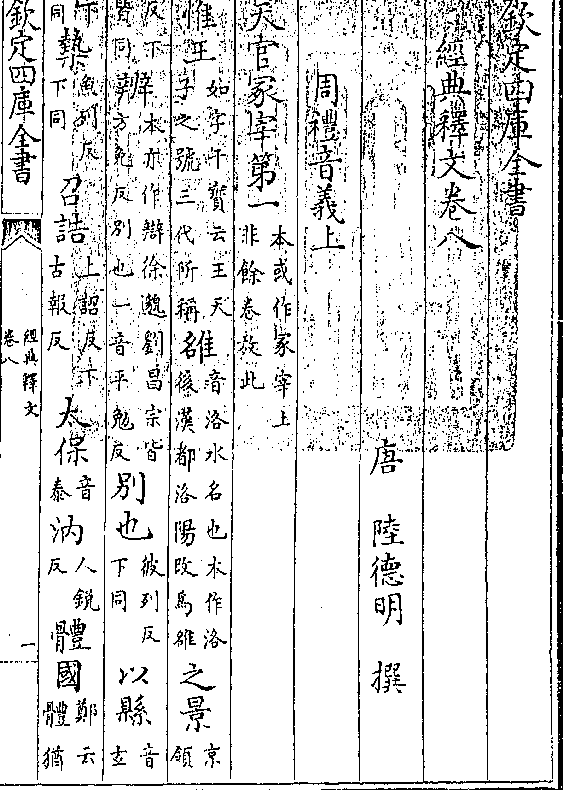 欽定四庫全書
經典釋文卷八
唐 陸德明 撰
周禮音義上
天官冢宰第一本或作冢宰上非餘卷放此
惟王如字干寳云王天子之號三代所稱雒音洛水名也本作洛後漢都洛陽改為雒之景京領
反下辯本亦作辯徐邈劉昌宗皆皆同方免反别也一音平勉反别也彼列反下同以縣音玄
卞魚列反同槷下同召誥上詔反下古報反太保音泰汭人銳反體國鄭云體猶
欽定四庫全書
經典釋文
卷八
一